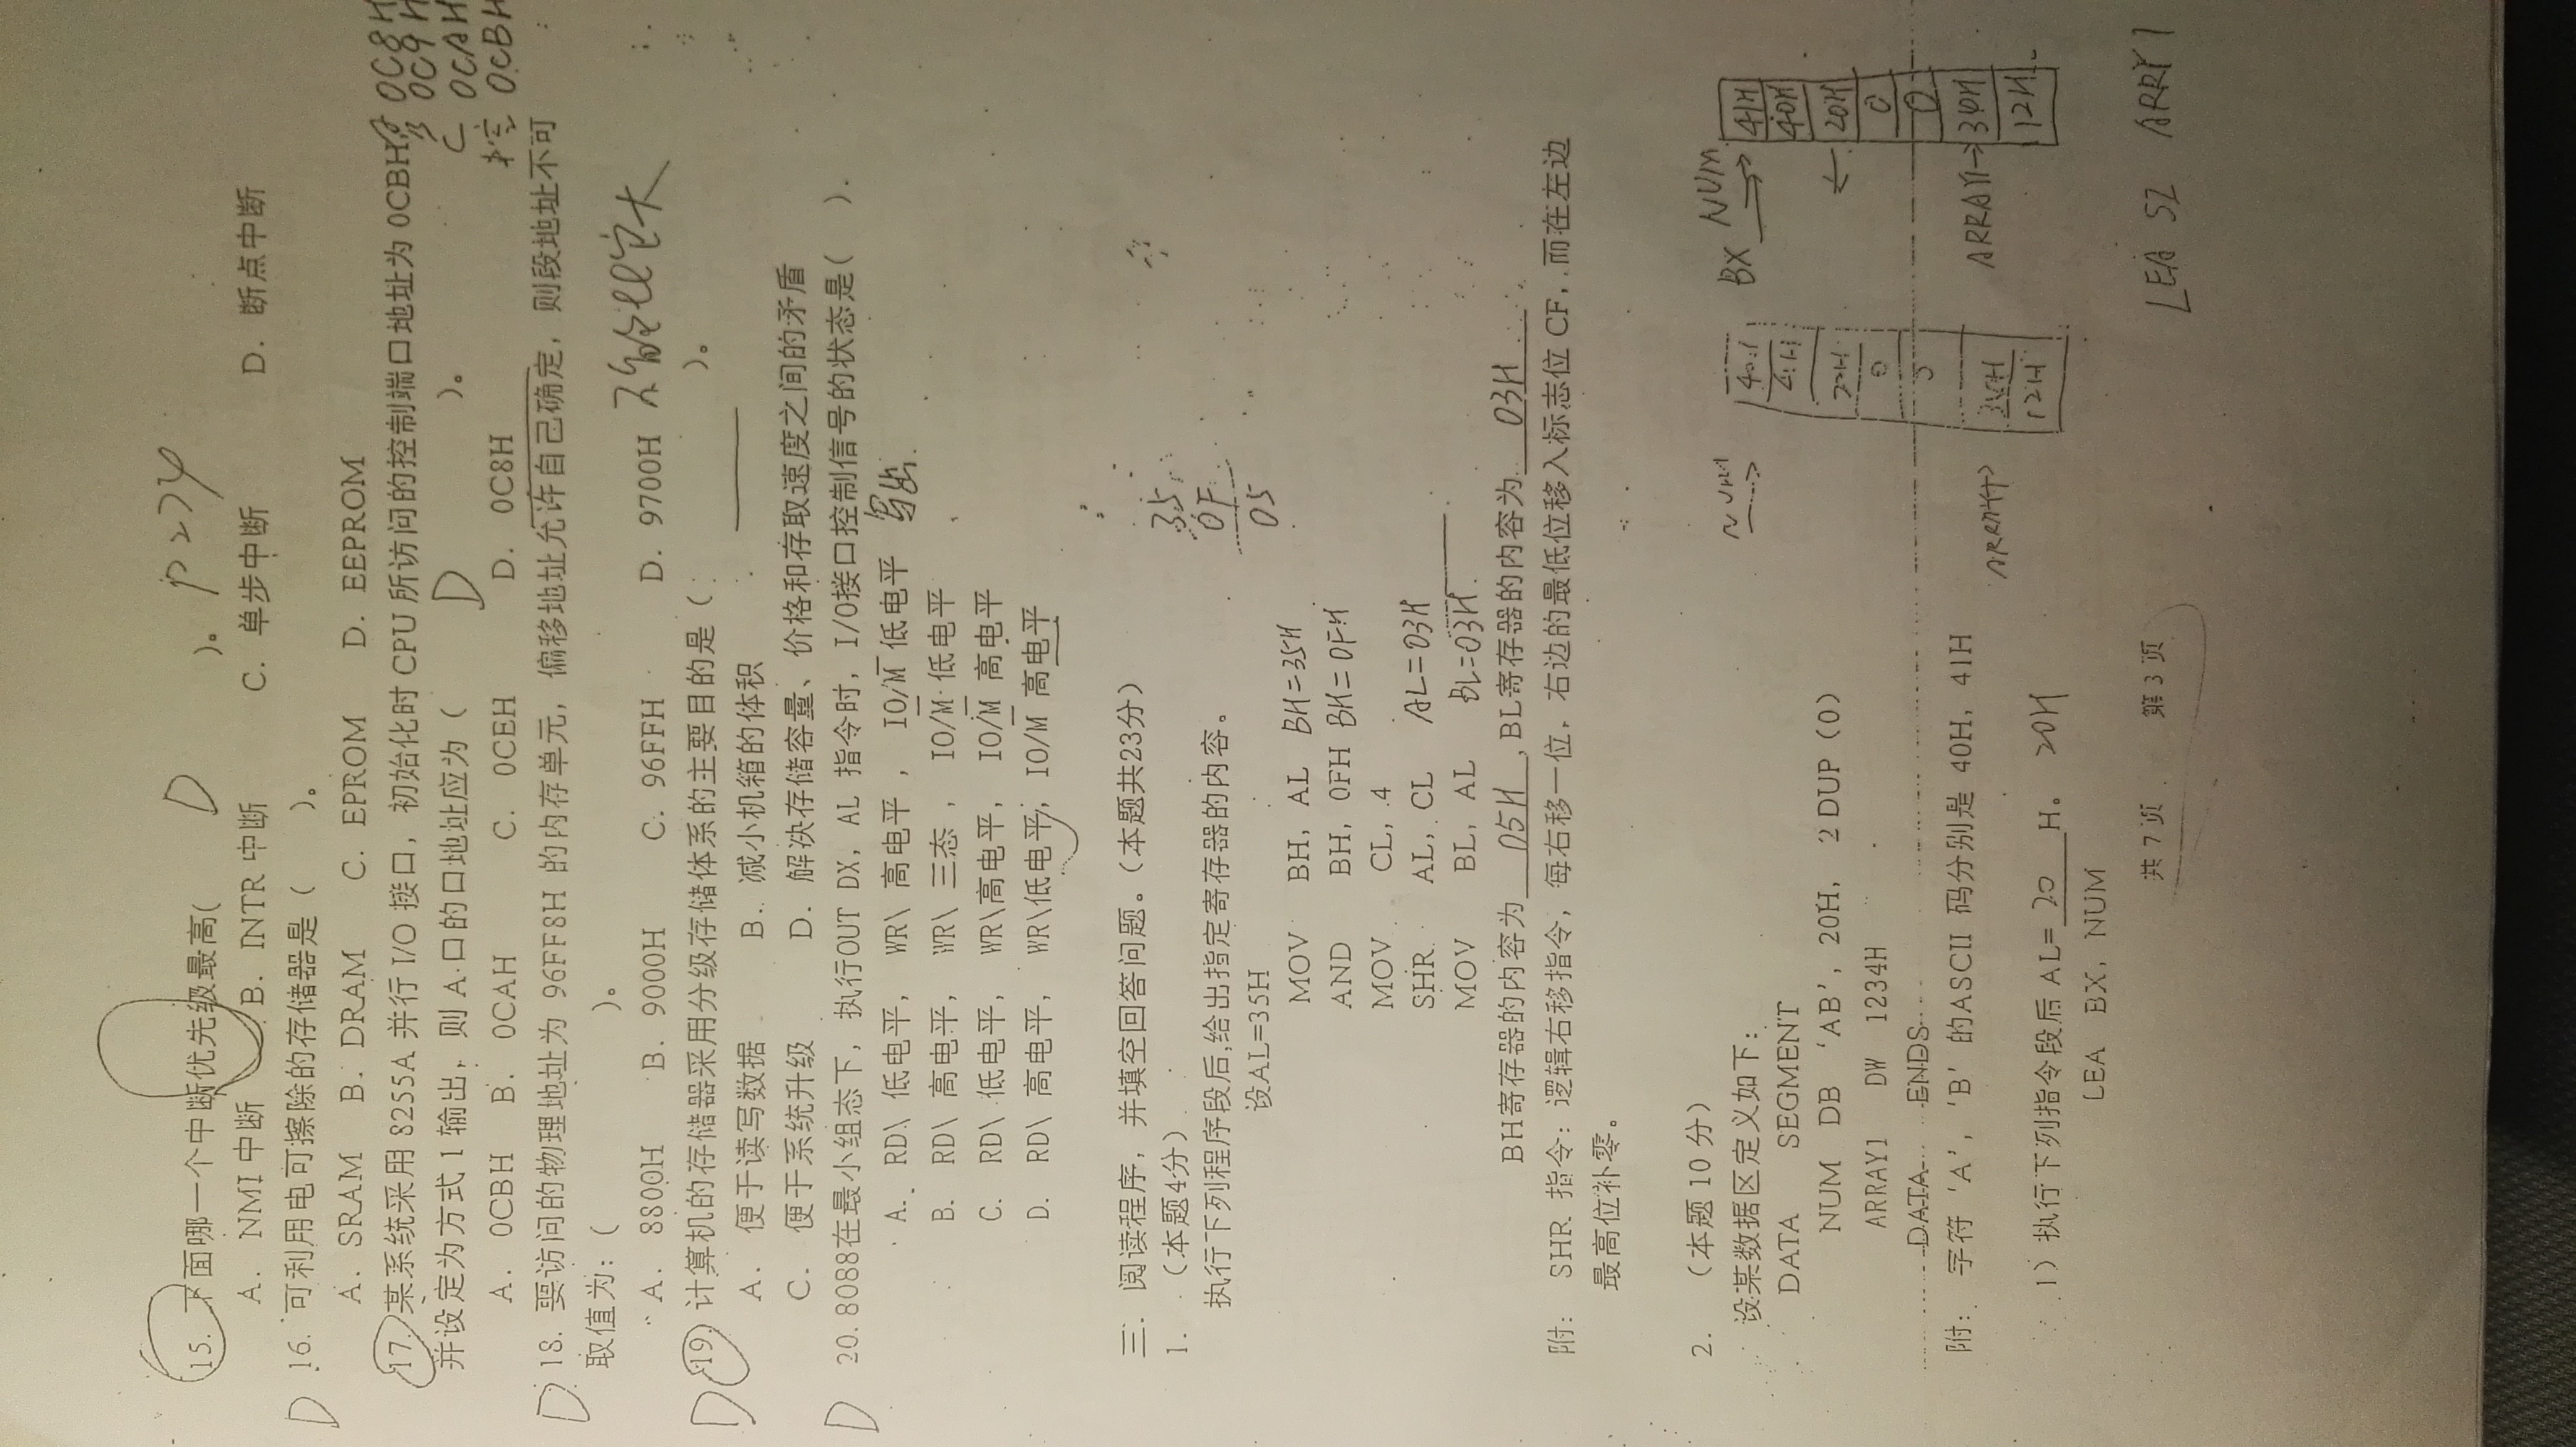 15. 下面哪一个中断优先级最高( D )。 P274
A. NMI 中断 B. INTR 中断 C. 单步中断 D. 断点中断
D 16. 可利用电可擦除的存储器是 ( )。
A. SRAM B. DRAM C. EPROM D. EEPROM
17. 某系统采用 8255A 并行 I/O 接口, 初始化时 CPU 所访问的控制端口地址为 0CBH,
并设定为方式 1 输出, 则 A 口的口地址应为 ( D )。
A. 0CBH B. 0CAH C. 0CEH D. 0C8H
A 0C8H
B 0C9H
C 0CAH
控 0CBH
D 18. 要访问的物理地址为 96FF8H 的内存单元, 偏移地址允许自己确定, 则段地址不可
取值为: ( )。
A. 8800H B. 9000H C. 96FFH D. 9700H 不能比它大
D 19. 计算机的存储器采用分级存储体系的主要目的是 ( )。
A. 便于读写数据 B. 减小机箱的体积
C. 便于系统升级 D. 解决存储容量、价格和存取速度之间的矛盾
D 20. 8088在最小组态下, 执行OUT DX, AL 指令时, I/O接口控制信号的状态是( ).
A. RD\ 低电平, WR\ 高电平 , IO/M 低电平 写出
B. RD\ 高电平, WR\ 三态 , IO/M 低电平
C. RD\ 低电平, WR\高电平, IO/M 高电平
D. RD\ 高电平, WR\低电平, IO/M 高电平
三. 阅读程序, 并填空回答问题。(本题共23分)
1. (本题4分)
执行下列程序段后,给出指定寄存器的内容。
设AL=35H
MOV BH, AL BH=35H
AND BH, 0FH BH=0FH
MOV CL, 4
SHR AL, CL AL=03H
MOV BL, AL BL=03H
35
0F
05
BH寄存器的内容为 05H ,BL寄存器的内容为 03H
附: SHR 指令: 逻辑右移指令, 每右移一位, 右边的最低位移入标志位 CF, 而在左边
最高位补零。
2. (本题 10 分)
设某数据区定义如下:
DATA SEGMENT
NUM DB 'AB', 20H, 2 DUP (0)
ARRAY1 DW 1234H
DATA ENDS
附: 字符 'A', 'B' 的ASCII 码分别是 40H, 41H
1) 执行下列指令段后 AL= 20 H. 20H
LEA BX, NUM
NUM
40H
41H
20H
0
12H
BX NUM
41H
40H
20H
0
0
ARRAY1→ 34H
12H
LEA SI ARRY1
共 7 页 第 3 页